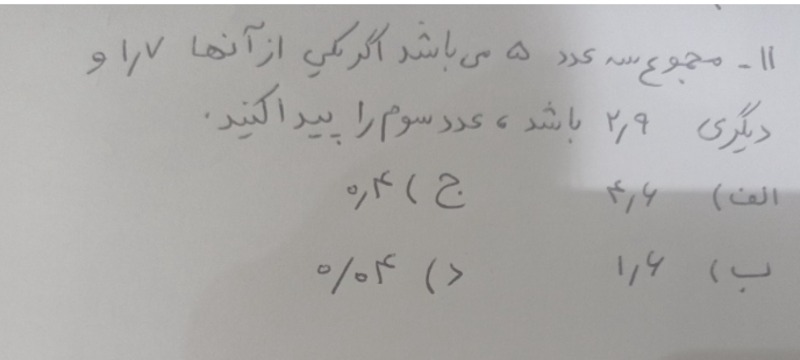 ۱۱- مجموع سه عدد ۵ می باشد اگر یکی از آنها ۱٫۷ و
دیگری ۲٫۹ باشد، عدد سوم را پیدا کنید.
الف) ۴٫۶ ج) ۰٫۴
ب) ۱٫۶ د) ۰/۰۴